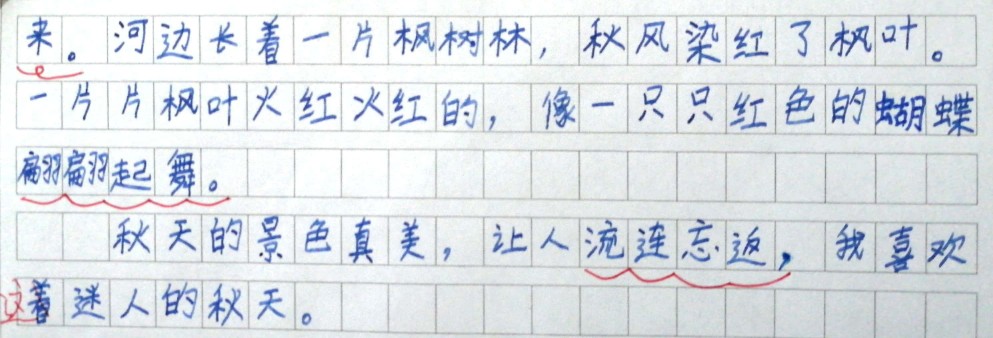 来。河边长着一片枫树林，秋风染红了枫叶。
一片片枫叶火红火红的，像一只只红色的蝴蝶
翩翩起舞。
秋天的景色真美，让人流连忘返，我喜欢
这着迷人的秋天。